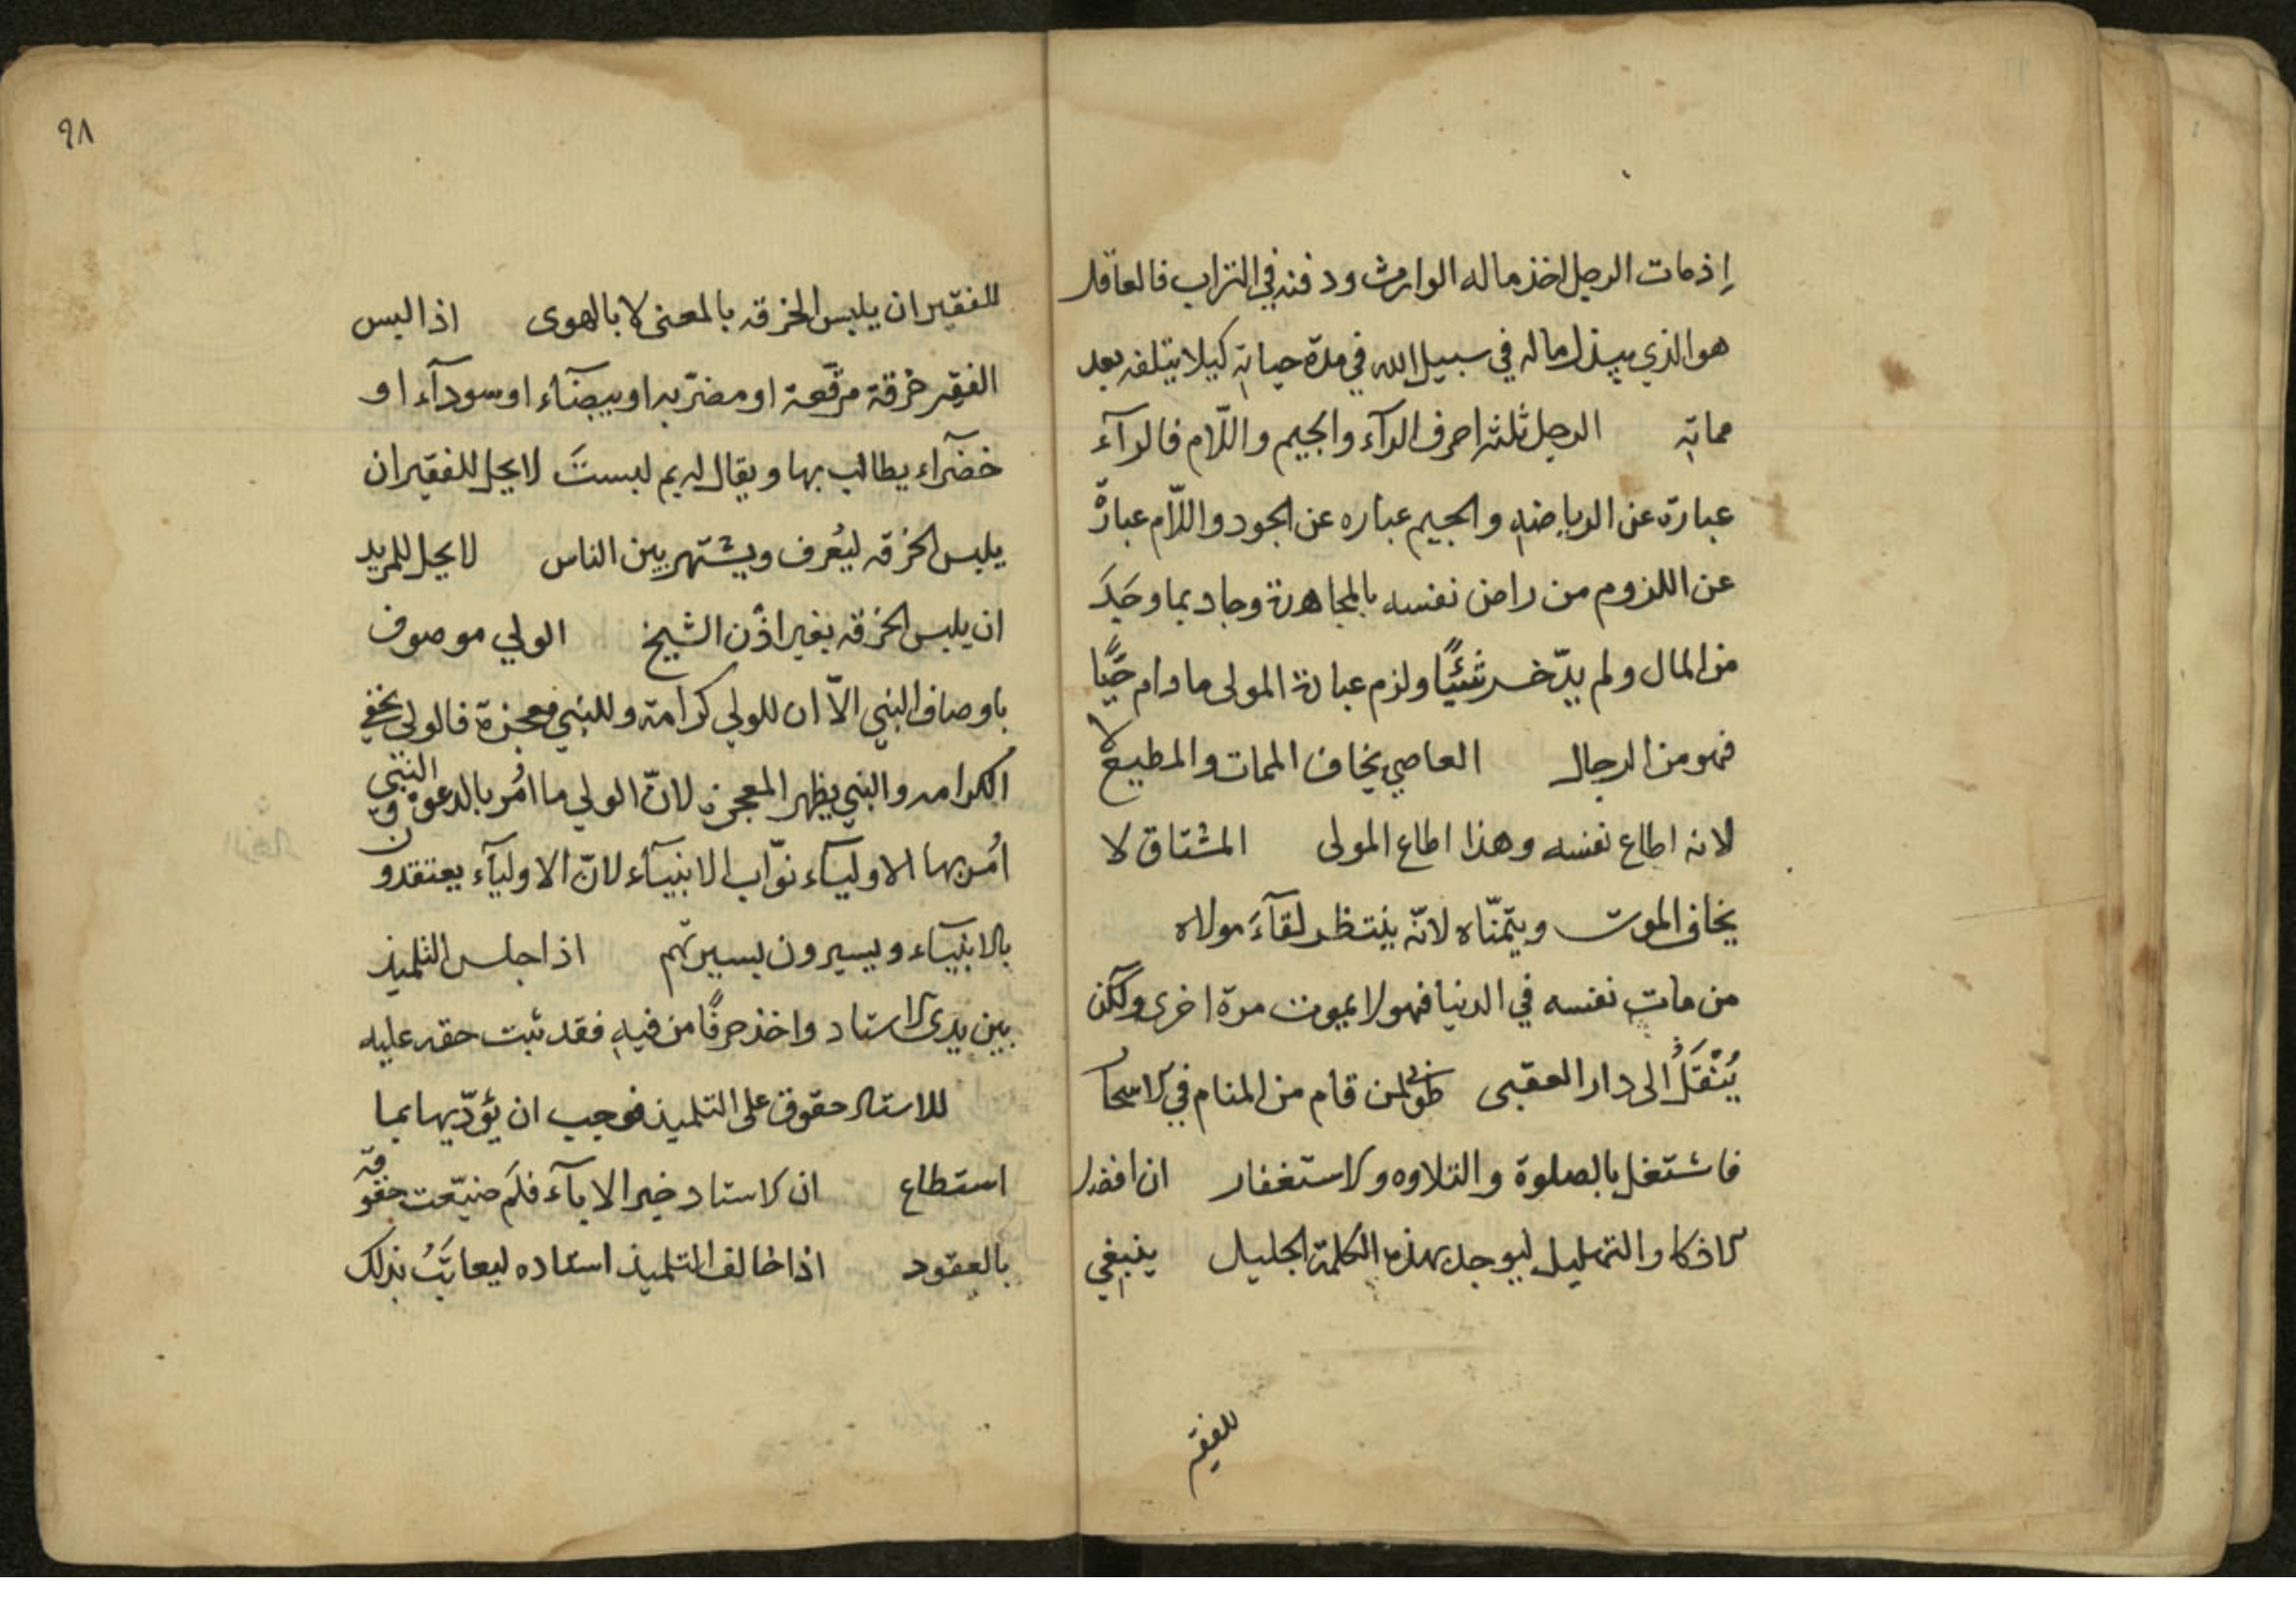 إذ مات الرجل اخذ ماله الوارث ودفنه في التراب فالعاقل
هو الذي يبذل ماله في سبيل الله في مدة حياته كيلا يتلفه بعد
مماته الرجل ثلثه احرف الرآء والجيم واللّام فالرآء
عبارة عن الرياضه والجيم عباره عن الجود واللّام عبارة
عن اللزوم من راض نفسه بالمجاهدة وجاد بما وجَدَ
من المال ولم يدّخر شيئًا ولزم عبادة المولى ما دام حيًّا
فهو من الرجال العاصي يخاف الممات والمطيع لا
لانه اطاع نفسه وهذا اطاع المولى المشتاق لا
يخاف الموت ويتمنّاه لانّه ينتظر لقآءَ مولاه
من مات نفسه في الدنيا فهو لا يموت مرة اخرى ولكن
يُنْقَلُ الى دار العقبى طوبى لمن قام من المنام في الاسحار
فاشتغل بالصلوة والتلاوه والاستغفار ان افضل
الاذكار والتهليل ليوجد بهذه الكلمة الجليل ينبغي
للفقير
٩٨
للفقير ان يلبس الخرقه بالمعنى لا بالهوى اذا لبس
الفقير خرقة مرقّعة او مضرّبه او بيضآء او سودآء او
خضرآء يطالب بها ويقال له بم لبستَ لا يحل للفقير ان
يلبس الخرقه ليُعرف ويشتهر بين الناس لا يحل للمريد
ان يلبس الخرقه بغير اذن الشيخ الولي موصوف
باوصاف النبي الّا ان للولي كرامة وللنبي معجزة فالولي يخفي
الكرامه والنبي يظهر المعجزه لانّ الولي ما اُمُر بالدعوة والنبي
اُمُر بها الاوليآء نوّاب الانبيآء لانّ الاوليآء يعتقدون
بالانبيآء ويسيرون بسيرتهم اذا جلس التلميذ
بين يدى الاستاد واخذ حرفًا من فيهِ فقد ثبت حقه عليه
للاستاد حقوق على التلميذ فوجب ان يؤدّيها بما
استطاع ان الاستاد خير الابآء فلَم ضيّعت حقوقه
بالعقود اذا خالف التلميذ استاده ليعاتَبُ بذلك